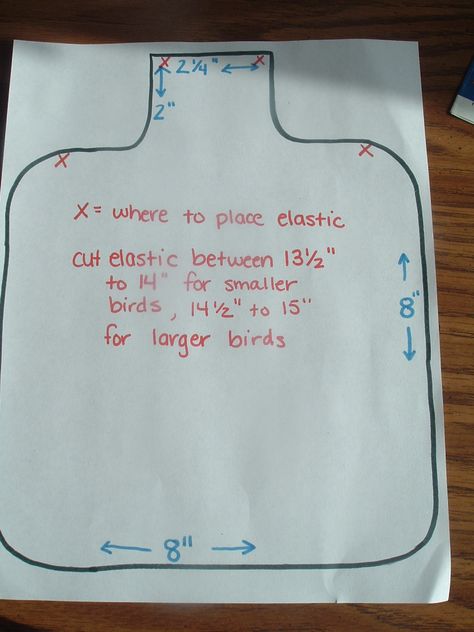 x x
2 1/4"
2"
x x
x = where to place elastic
cut elastic between 13 1/2"
to 14" for smaller
birds, 14 1/2" to 15"
for larger birds
8"
8"